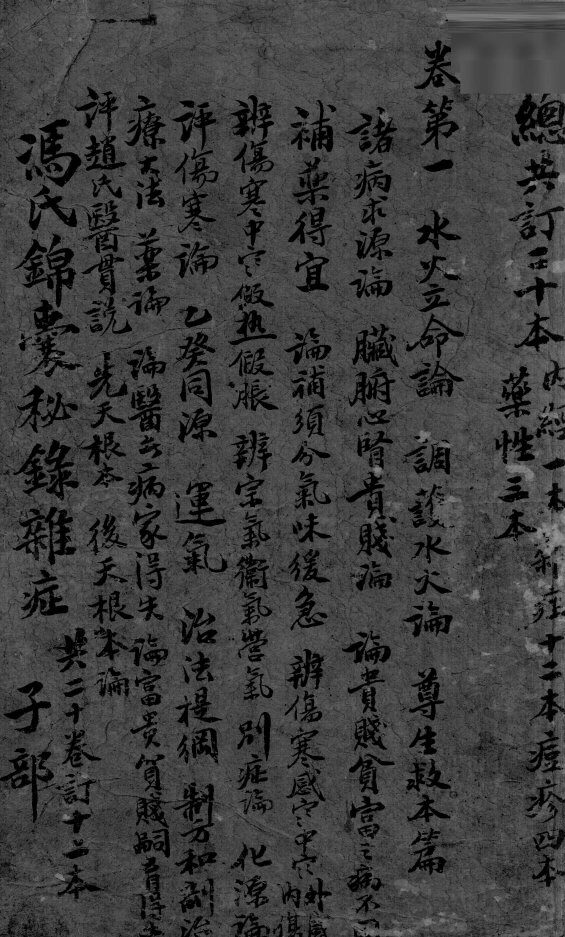 總共訂二十本 內經一本 雜症十二本 痘疹四本
藥性三本
卷第一 水火立命論 調護水火論 尊生救本篇
諸病求源論 臟腑心腎貴賤論 論貴賤貧富之病不
補藥得宜 論補須分氣味緩急 辨傷寒感寒中寒外感內傷
辨傷寒中寒假熱假脹 辨宗氣衛氣營氣 別症論 化源論
評傷寒論 乙癸同源 運氣 治法提綱 制方和劑治
療大法 藥論 論醫與病家得失 論富貴貧賤嗣育得失
評趙氏醫貫說 先天根本 後天根本論
馮氏錦囊秘錄雜症 共二十卷訂十二本 子部